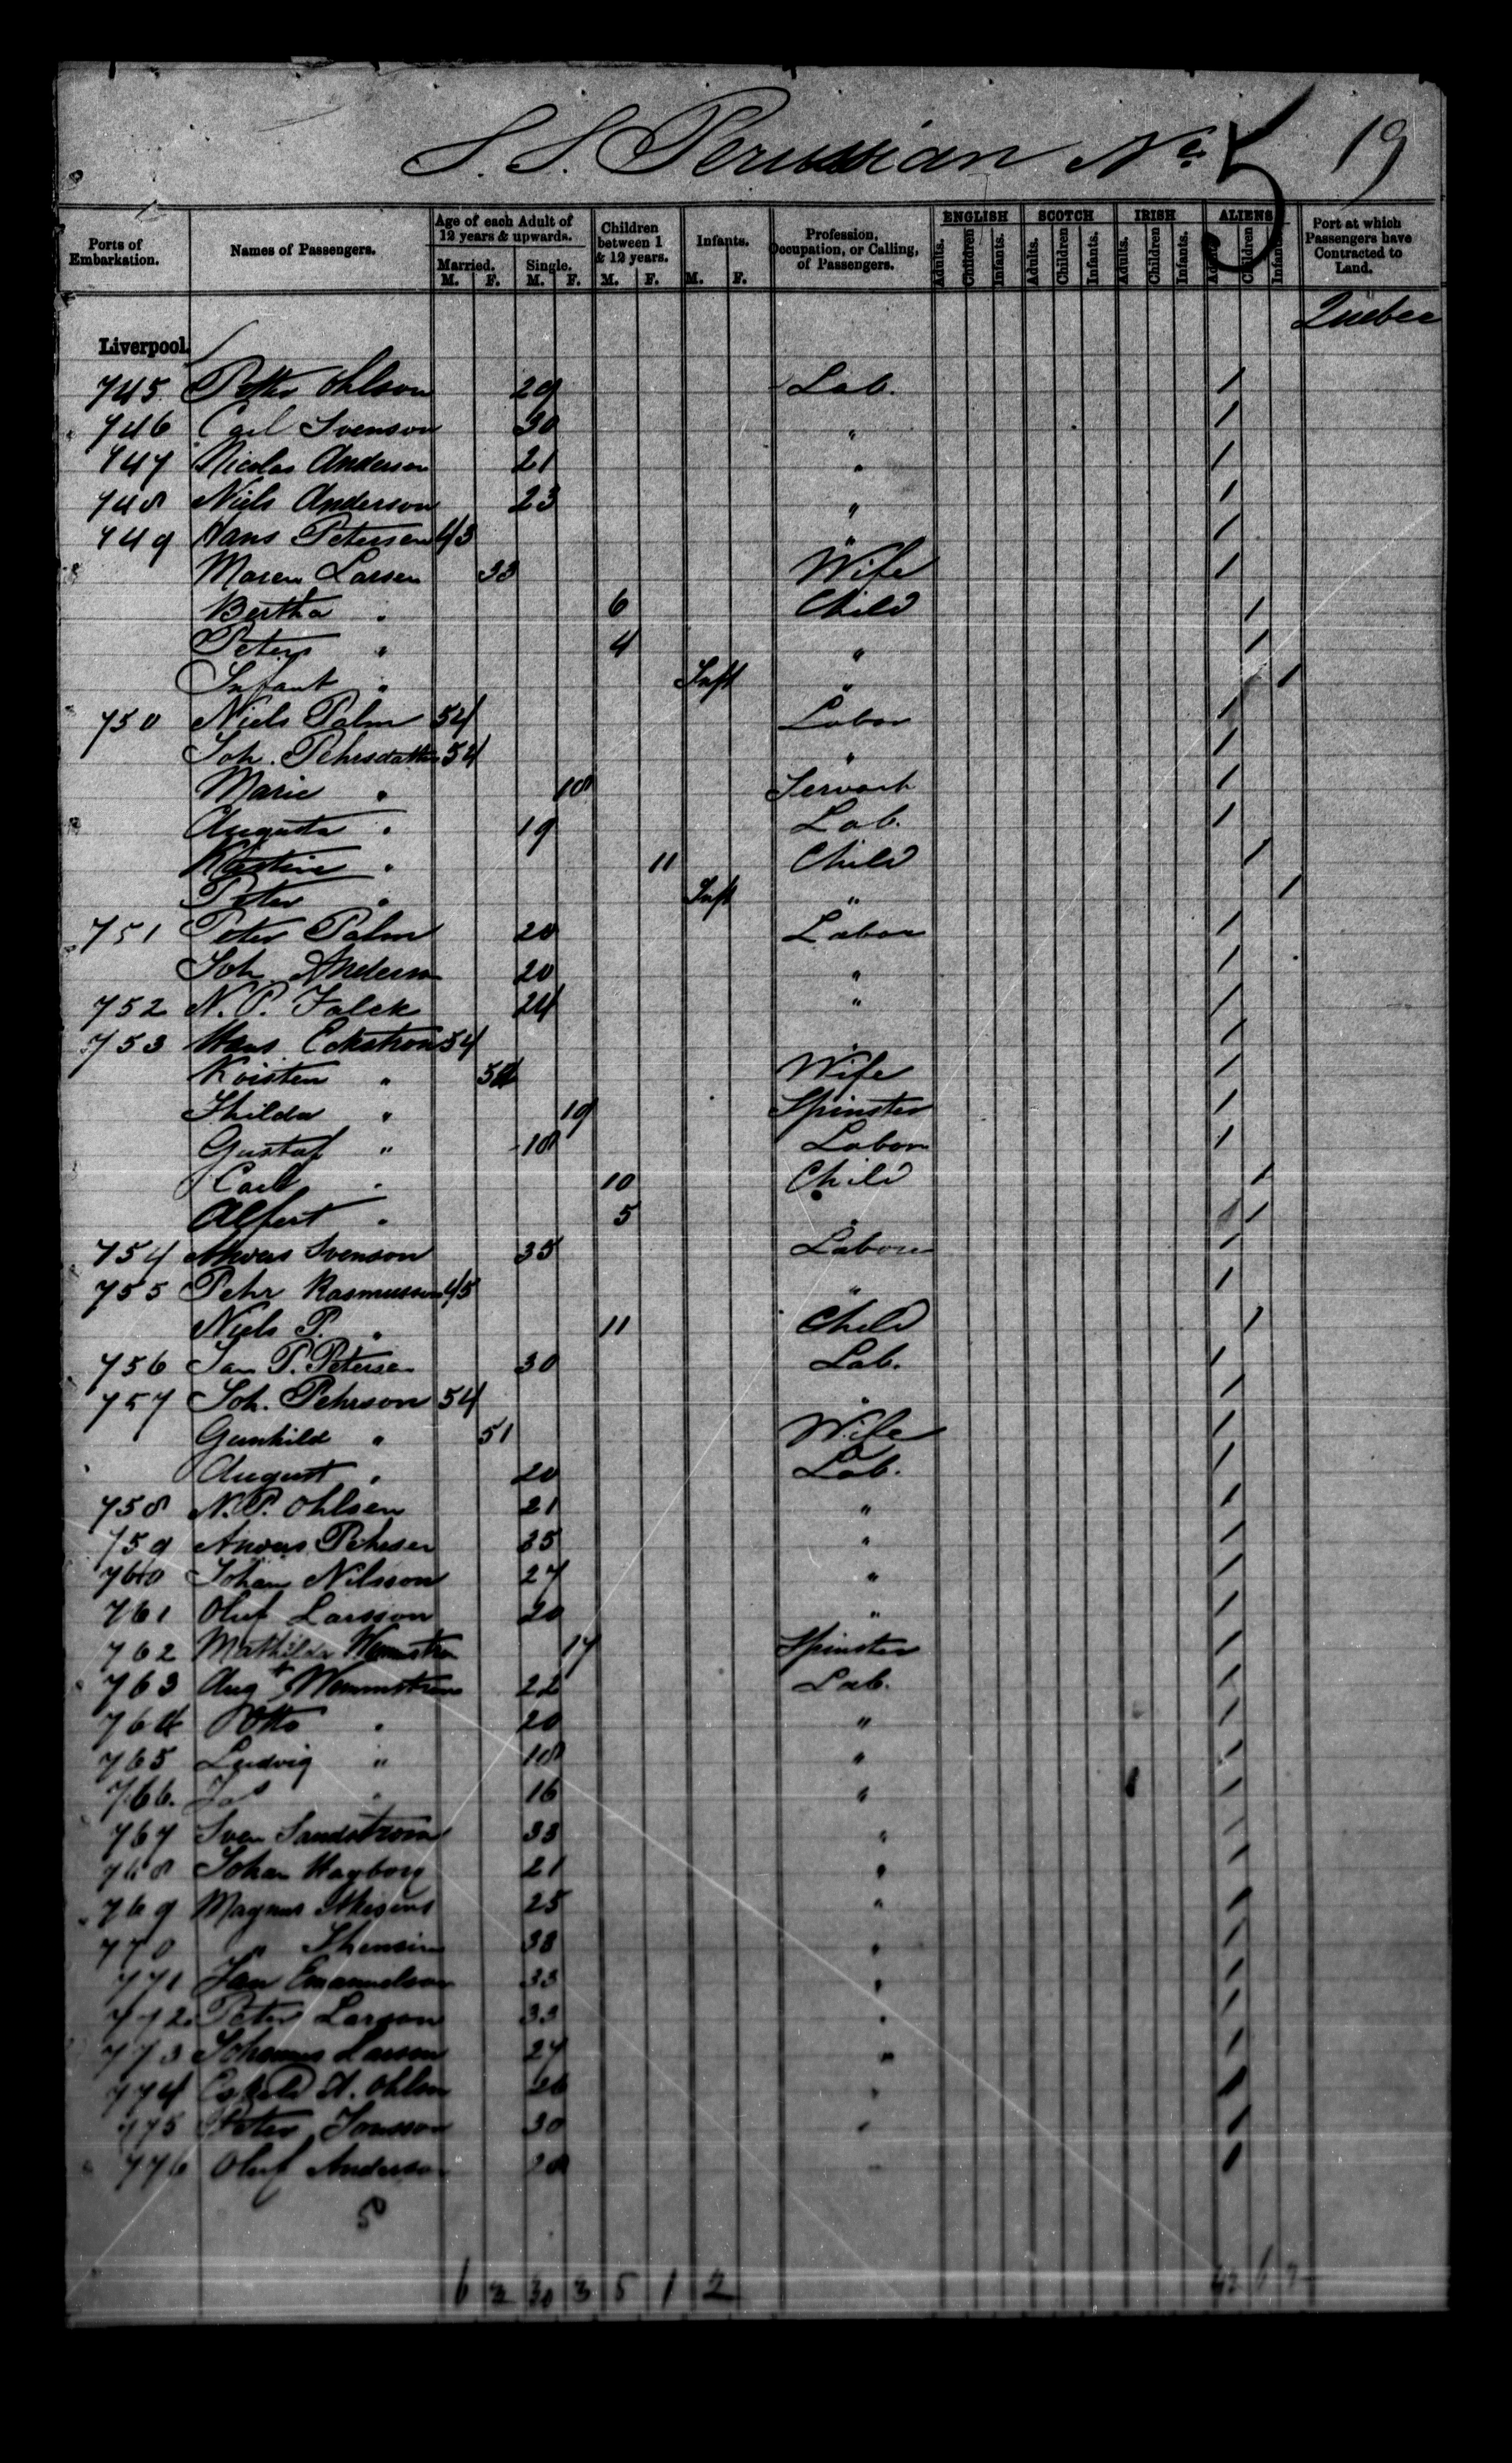 S.S. Peruvian No. 5 19
Ports of Embarkation. Names of Passengers. Age of each Adult of 12 years & upwards. Married. M. F. Single. M. F. Children between 1 & 12 years. M. F. Infants. M. F. Profession, Occupation, or Calling, of Passengers. ENGLISH Adults. Children Infants. SCOTCH Adults. Children Infants. IRISH Adults. Children Infants. ALIENS Adults Children Infants Port at which Passengers have Contracted to Land.
Quebec
Liverpool.
745 Ohlson 29 Lab. /
746 Carl Svenson 30 " /
747 Nicolas Anderson 21 " /
748 Niels Anderson 23 " /
749 Hans Petersen 43 " /
Maren Larsen 33 Wife /
Bertha " 6 Child /
Peter " 4 " /
Infant " Inft " /
750 Niels Palm 54 Labor /
Joh. Pehrsdatter 54 " /
Marie " 18 Servant /
Augusta " 19 Lab. /
" 11 Child /
Peter " Inft " /
751 Peter Palm 20 Labor /
Joh Anderson 20 " /
752 N. P. Falck 24 " /
753 Hans Eckstrom 54 " /
Kristen " Wife /
Thilda " 19 Spinster /
Gustaf " 18 Labor /
Carl " 10 Child /
Alfert " 5 " /
754 Anders Svenson 35 Labour /
755 Pehr Rasmusson 45 " /
Niels P. " 11 Child /
756 Jan P. Petersen 30 Lab. /
757 Joh. Pehrson 54 " /
Gunhild " 51 Wife /
August " 20 Lab. /
758 N. P. Ohlsen 21 " /
759 Anders Pehrsen " /
760 Johan Nilsson 27 " /
761 Oluf Larsson 20 " /
762 Mathilda 17 Spinster /
763 Augt Wennstrom 22 Lab. /
764 Otto " 20 " /
765 Ludvig " 18 " /
766. " 16 " /
767 Sven Sandstrom 33 " /
768 Johan Hagborg 21 " /
769 Magnus 25 " /
770 " 38 " /
771 Jan Emanuelson 33 " /
772 Peter Larson 33 " /
773 Johannes Larson 27 " /
774 Ohlson 26 " /
775 Peter Jonsson 30 " /
776 Oluf Anderson " /
5
6 3 30 3 5 1 2 42 6 2